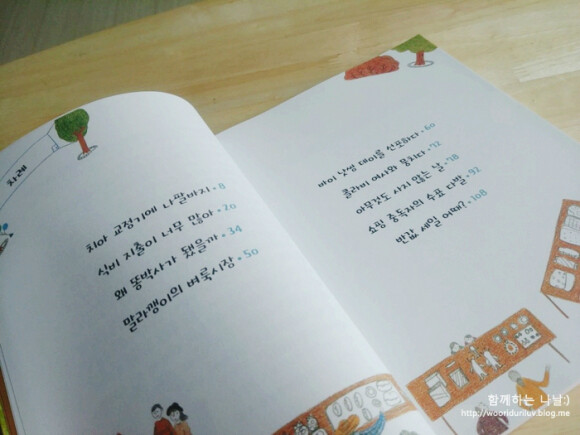 차례
치아 교정기에 나팔까지 • 8
식비 지출이 너무 많아 • 20
왜 똥박사가 됐을까 • 34
말라깽이의 벼룩시장 • 50
바이 낫씽 데이를 선포하다 • 60
클라비 여사와 뭉치다 • 72
아무것도 사지 않는 날 • 78
쇼핑 중독자의 수표 다발 • 92
반값 세일 어때? • 108
함께하는 나날:)
http://wooriduriluv.blog.me